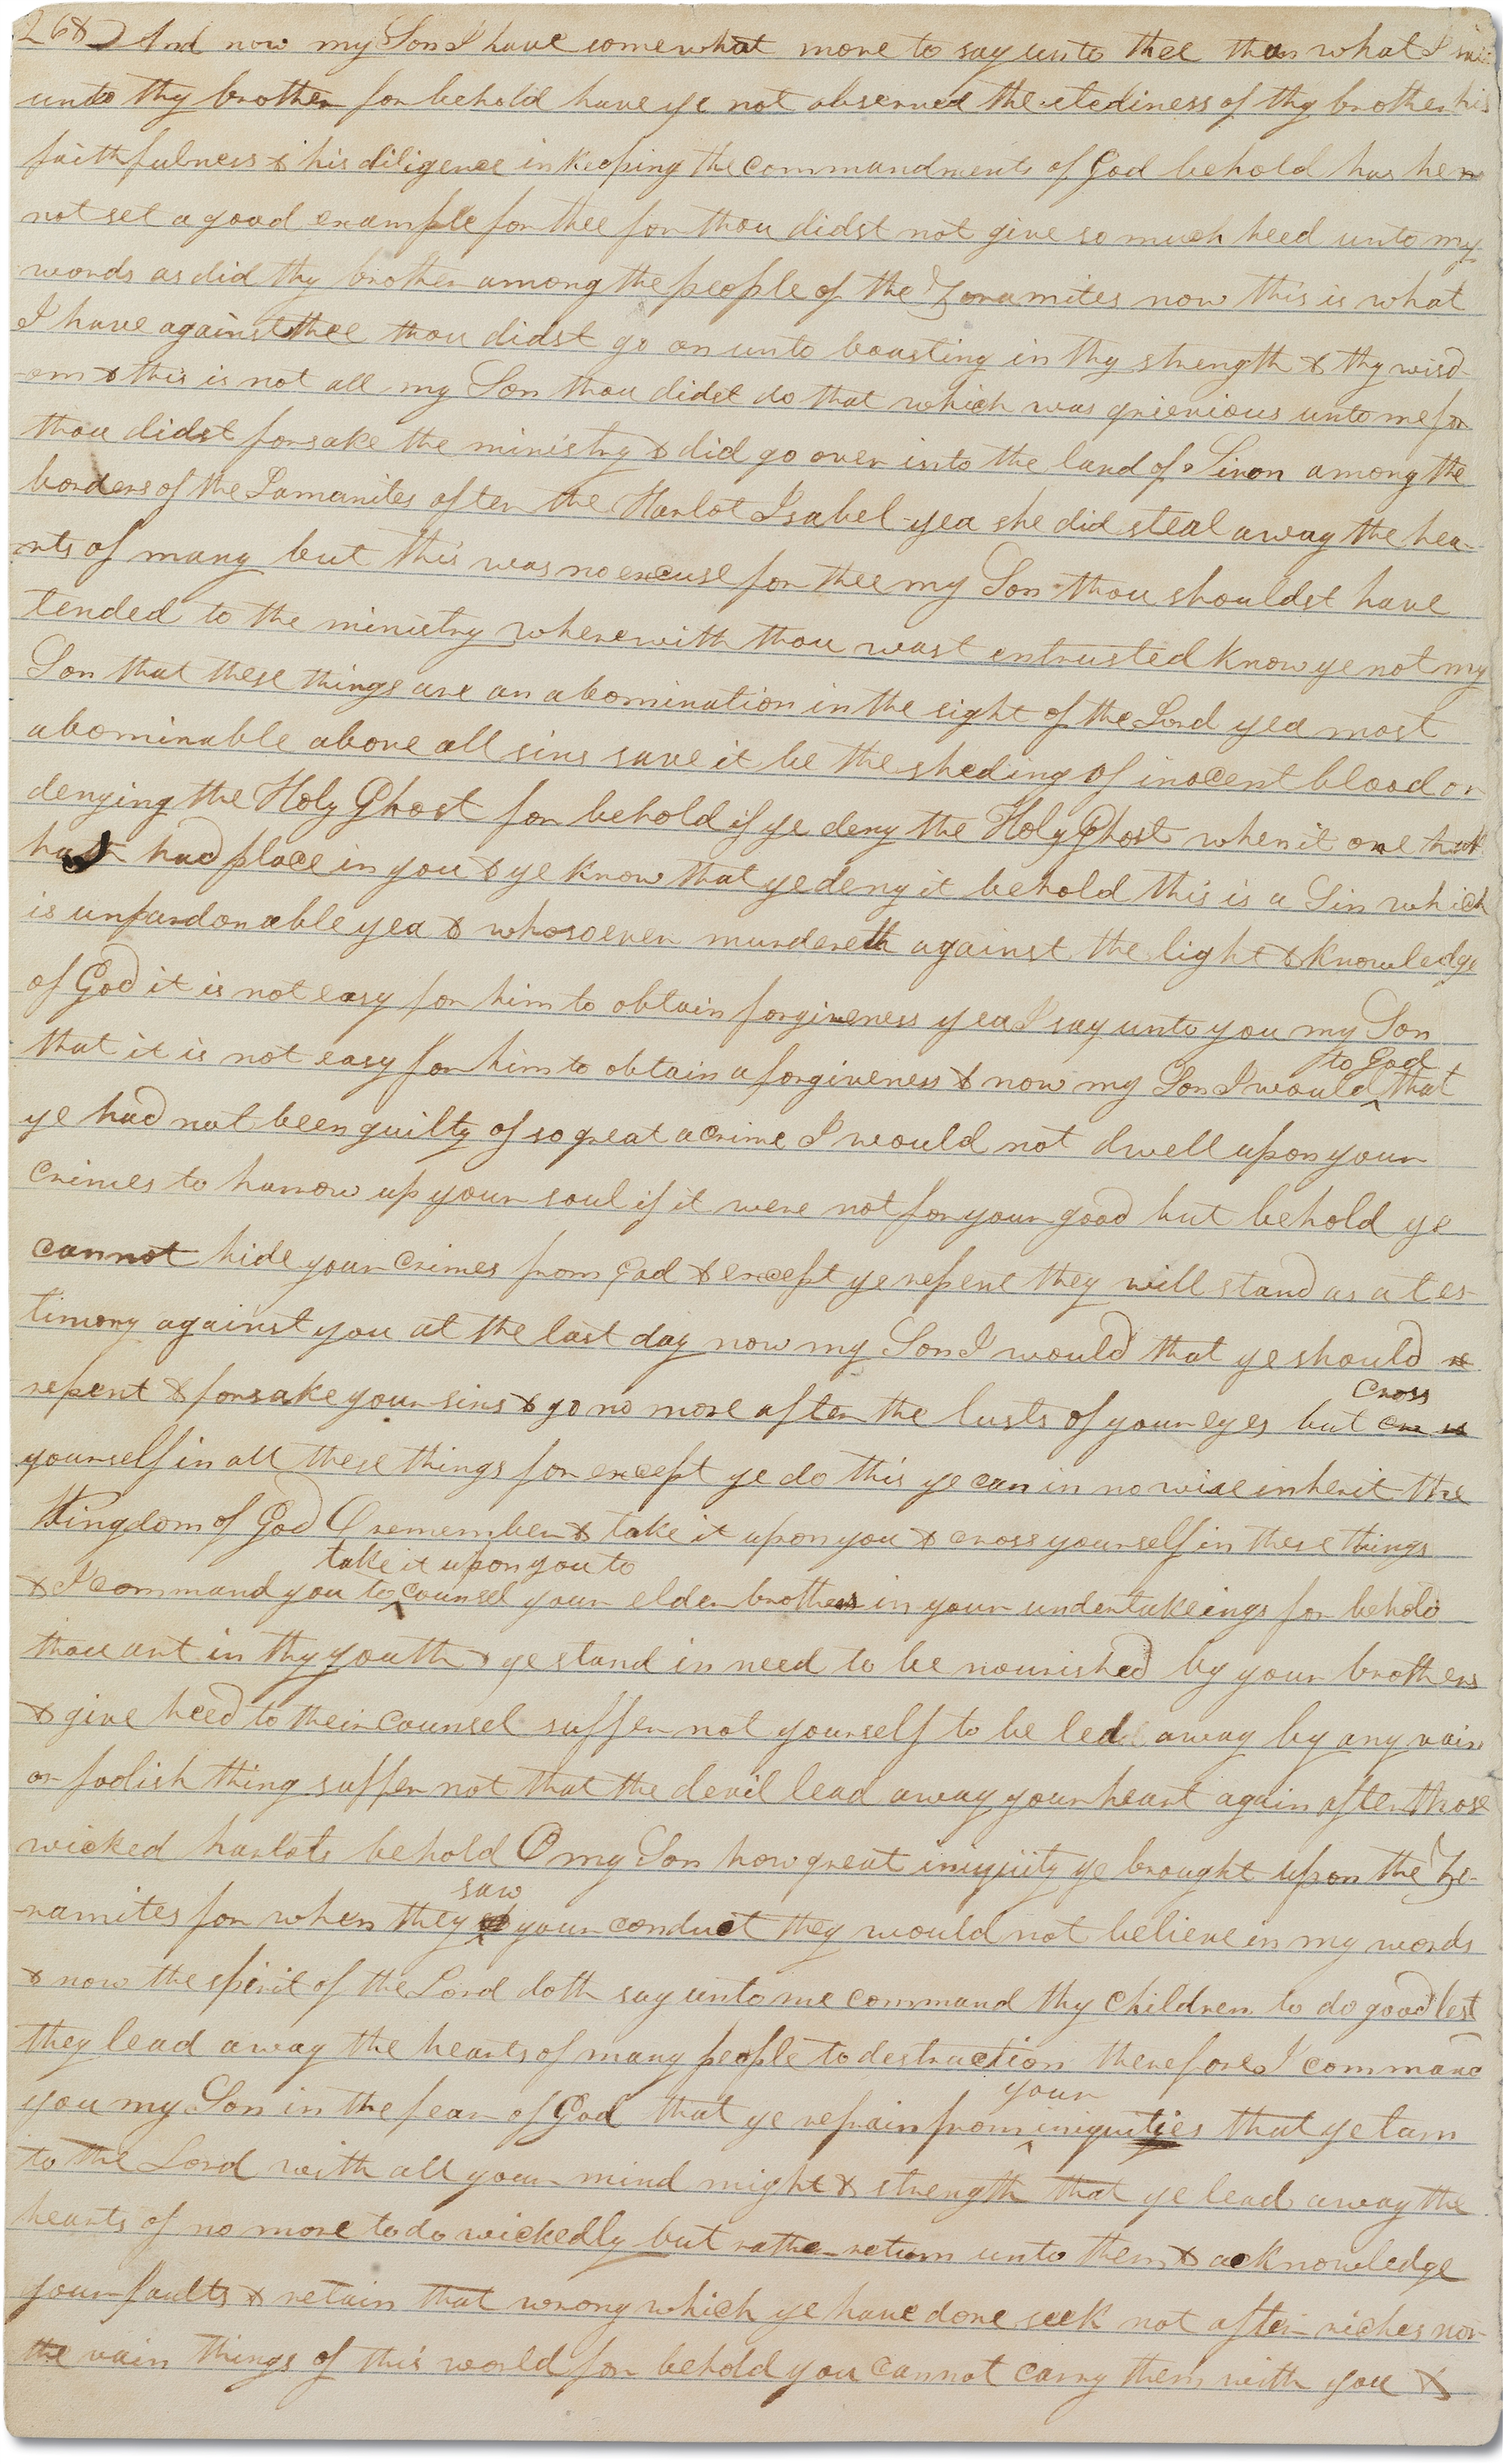 268 And now my Son I have somewhat more to say unto thee than what I said
unto thy brother for behold have ye not observed the stediness of thy brother his
faithfulness & his diligence in keeping the commandments of God behold has he
not set a good example for thee for thou didst not give so much heed unto my
words as did thy brother among the people of the Zoramites now this is what
I have against thee thou didst go on unto boasting in thy strength & thy wisd-
-om & this is not all my Son thou didst do that which was grievious unto me for
thou didst forsake the ministry & did go over into the land of Siron among the
borders of the Lamanites after the Harlot Isabel yea she did steal away the hea-
-rts of many but this was no excuse for thee my Son thou shouldst have
tended to the ministry wherewith thou wast entrusted know ye not my
Son that these things are an abomination in the sight of the Lord yea most
abominable above all sins save it be the sheding of inocent blood or
denying the Holy Ghost for behold if ye deny the Holy Ghost when it once hath
had place in you & ye know that ye deny it behold this is a Sin which
is unpardonable yea & whosoever murdereth against the light & knowledge
of God it is not easy for him to obtain forgiveness yea I say unto you my Son
to God
that it is not easy for him to obtain a forgiveness & now my Son I would ^ that
ye had not been guilty of so great a crime I would not dwell upon your
crimes to harrow up your soul if it were not for your good but behold ye
cannot hide your crimes from God & except ye repent they will stand as a tes-
timony against you at the last day now my Son I would that ye should re
cross
repent & forsake your sins & go no more after the lusts of your eyes but
yourself in all these things for except ye do this ye can in no wise inherit the
Kingdom of God O remember & take it upon you & cross yourself in these things
take it upon you to
& I command you to ^ counsel your elder brothers in your undertakeings for behold
thou art in thy youth & ye stand in need to be nourished by your brothers
& give heed to their counsel suffer not yourself to be led away by any vain
or foolish thing suffer not that the devil lead away your heart again after those
wicked harlots behold O my Son how great iniquity ye brought upon the Zo-
saw
-ramites for when they ^ your conduct they would not believe in my words
& now the spirit of the Lord doth say unto me command thy children to do good lest
they lead away the hearts of many people to destruction therefore I command
your
you my Son in the fear of God that ye refrain from ^ iniquities that ye turn
to the Lord with all your mind might & strength that ye lead away the
hearts of no more to do wickedly but rather return unto them & acknowledge
your faults & retain that wrong which ye have done seek not after riches nor
the vain things of this world for behold you cannot carry them with you &